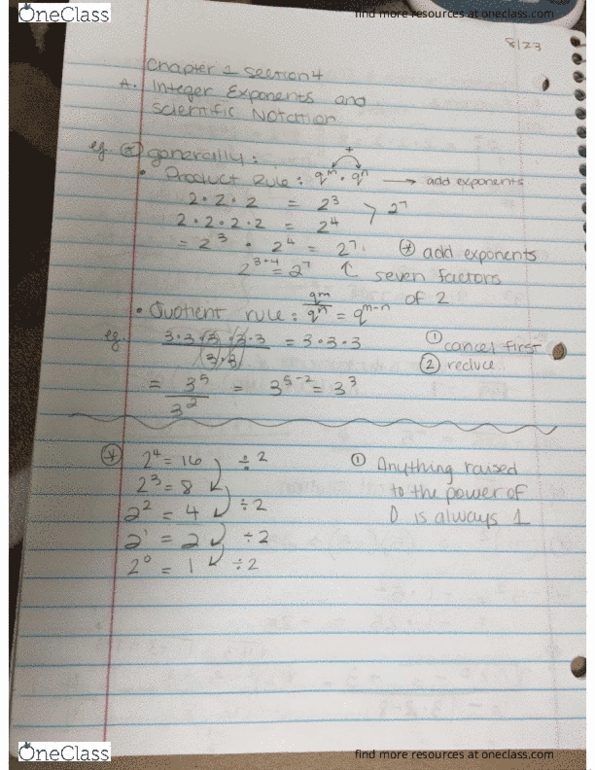 OneClass
find more resources at oneclass.com
8/23
Chapter 1 Section 4
A. Integer Exponents and
Scientific Notation
eg. * generally:
+
• Product Rule: q^m · q^n → add exponents
2 · 2 · 2 = 2^3 > 2^7
2 · 2 · 2 · 2 = 2^4
= 2^3 · 2^4 = 2^7. * add exponents
2^3+4 = 2^7 ↑ seven factors
of 2
• Quotient rule: q^m/q^n = q^m-n
eg. 3·3·3·3·3/(3·3) = 3·3·3 ① cancel first
② reduce
= 3^5/3^2 = 3^5-2 = 3^3
* 2^4 = 16 ÷2 ① Anything raised
2^3 = 8 to the power of
2^2 = 4 ÷2 0 is always 1
2^1 = 2 ÷2
2^0 = 1 ÷2
OneClass
find more resources at oneclass.com